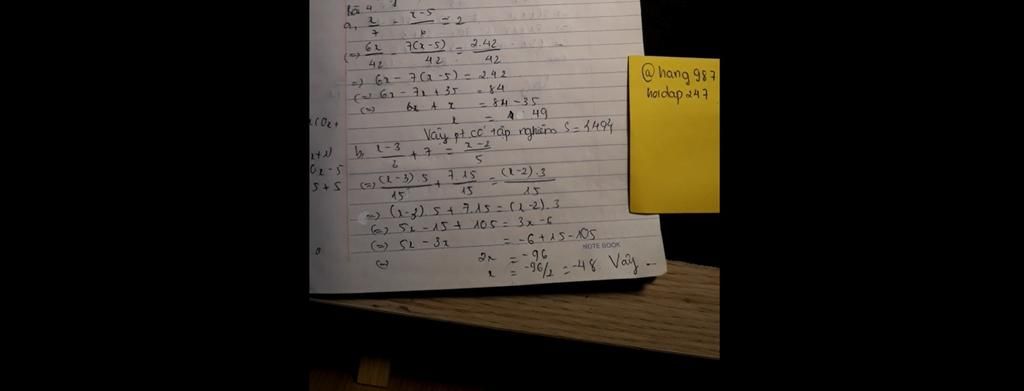 Bài 4
a, x/7 - (x-5)/ = 2
(=) 6x/42 - 7(x-5)/42 = 2.42/42
=) 6x - 7(x-5) = 2.42
(=) 6x - 7x + 35 = 84
(=) x = 84 - 35
x = 49
Vậy pt có tập nghiệm S = {49}
b, (x-3)/ + 7 = (x-2)/5
(=) (x-3).5/15 + 7.15/15 = (x-2).3/15
=) (x-3).5 + 7.15 = (x-2).3
(=) 5x - 15 + 105 = 3x - 6
(=) 5x - 3x = -6 + 15 - 105
(=) 2x = -96
x = -96/2 = -48. Vậy ...
NOTE BOOK
@hang987
hoidap247
x+1)
0x - 5
5 + 5